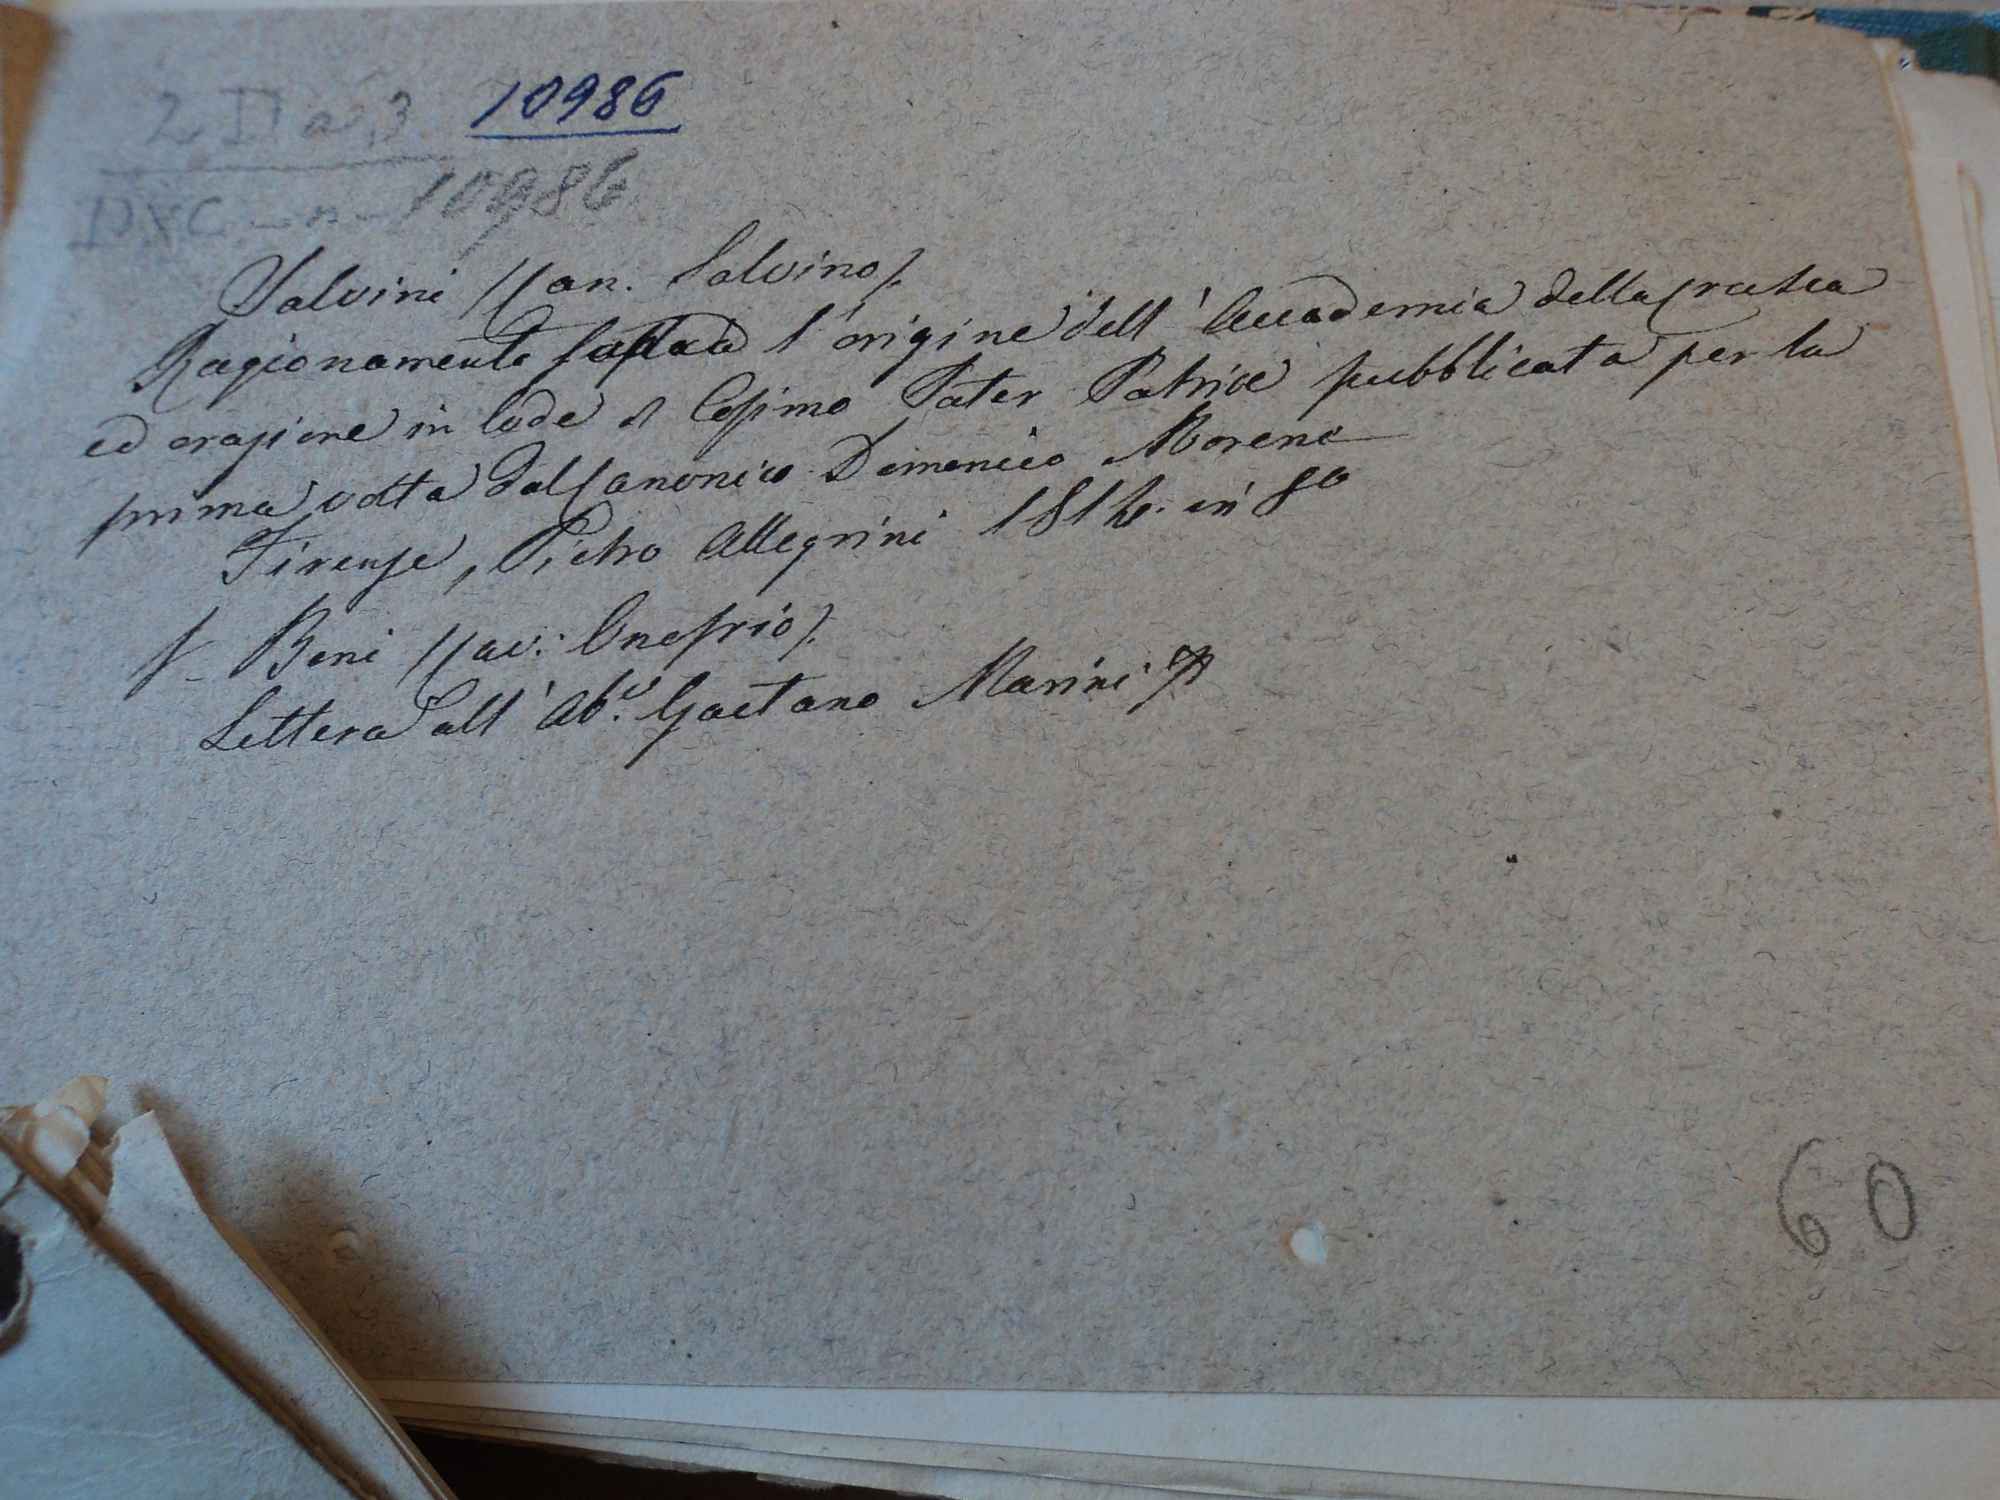 2 II a 3 10986
DXC - n - 10986
Salvini (Can. Salvino).
Ragionamento sopra l'origine dell'Accademia della Crusca
ed orazione in lode di Cosimo Pater Patriae pubblicata per la
prima volta dal Canonico Domenico Moreni
Firenze, Pietro Allegrini 1814. in 8º
Beni (Cav: Onofrio).
Lettera all'Ab.e Gaetano Marini
60